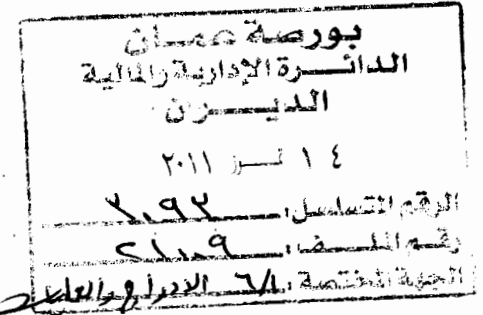 بورصة عمان
الدائرة الإدارية والمالية
الديوان
١٤ تموز ٢٠١١
الرقم المتسلسل: ٣٠٩٢
رقم الملف: ٢١١٠٩
الجهة المختصة: ٦/١ الادراج